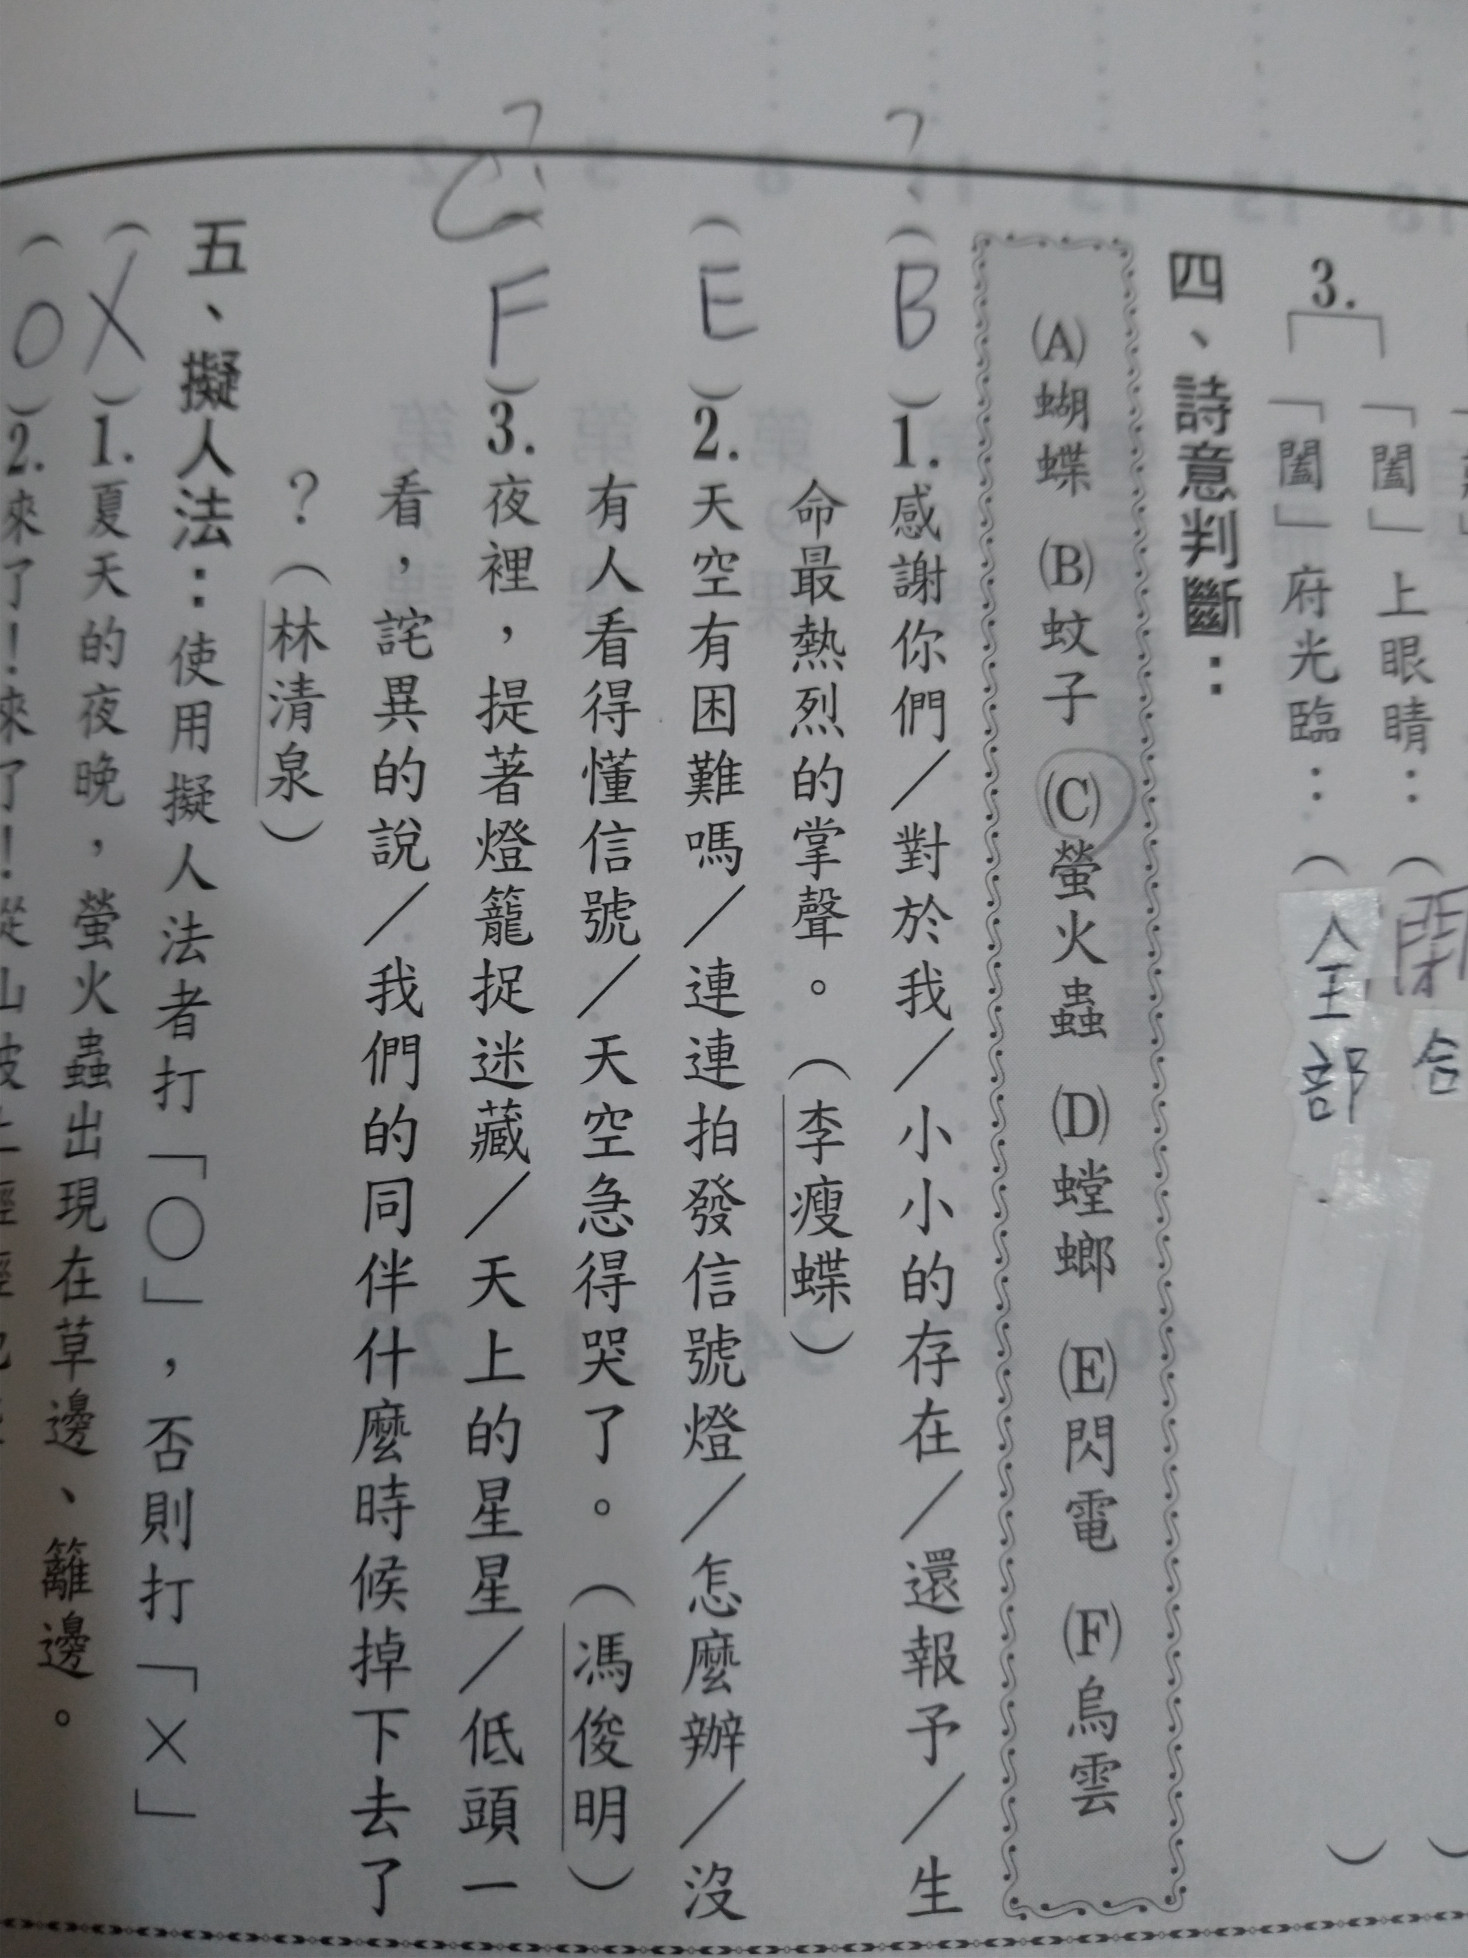 3.
「闔」上眼睛：（閉合）
「闔」府光臨：（全部）
四、詩意判斷：
(A)蝴蝶 (B)蚊子 (C)螢火蟲 (D)螳螂 (E)閃電 (F)烏雲
?
（B）1.感謝你們／對於我／小小的存在／還報予／生
命最熱烈的掌聲。（李瘦蝶）
（E）2.天空有困難嗎／連連拍發信號燈／怎麼辦／沒
有人看得懂信號／天空急得哭了。（馮俊明）
?
C
（F）3.夜裡，提著燈籠捉迷藏／天上的星星／低頭一
看，詫異的說／我們的同伴什麼時候掉下去了
？（林清泉）
五、擬人法：使用擬人法者打「○」，否則打「×」
（X）1.夏天的夜晚，螢火蟲出現在草邊、籬邊。
（O）2.來了！來了！從山坡上輕輕地